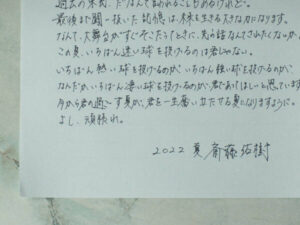 過去の栄光、だなんて言われることもあるけれど。
最後まで闘い抜いた記憶は、未来を生きる大きな力になります。
なんて、大舞台がすぐそこだ！ってときに、先の話なんてされたくないか。
この夏、いちばん速い球を投げるのは君じゃない。
いちばん熱い球を投げるのが、いちばん強い球を投げるのが、
なんだかいちばん凄い球を投げるのが君であってほしいと思っています
今から君の過ごす夏が、君を一生奮い立たせる夏になりますように。
よし、頑張れ。
2022 夏 斎藤佑樹